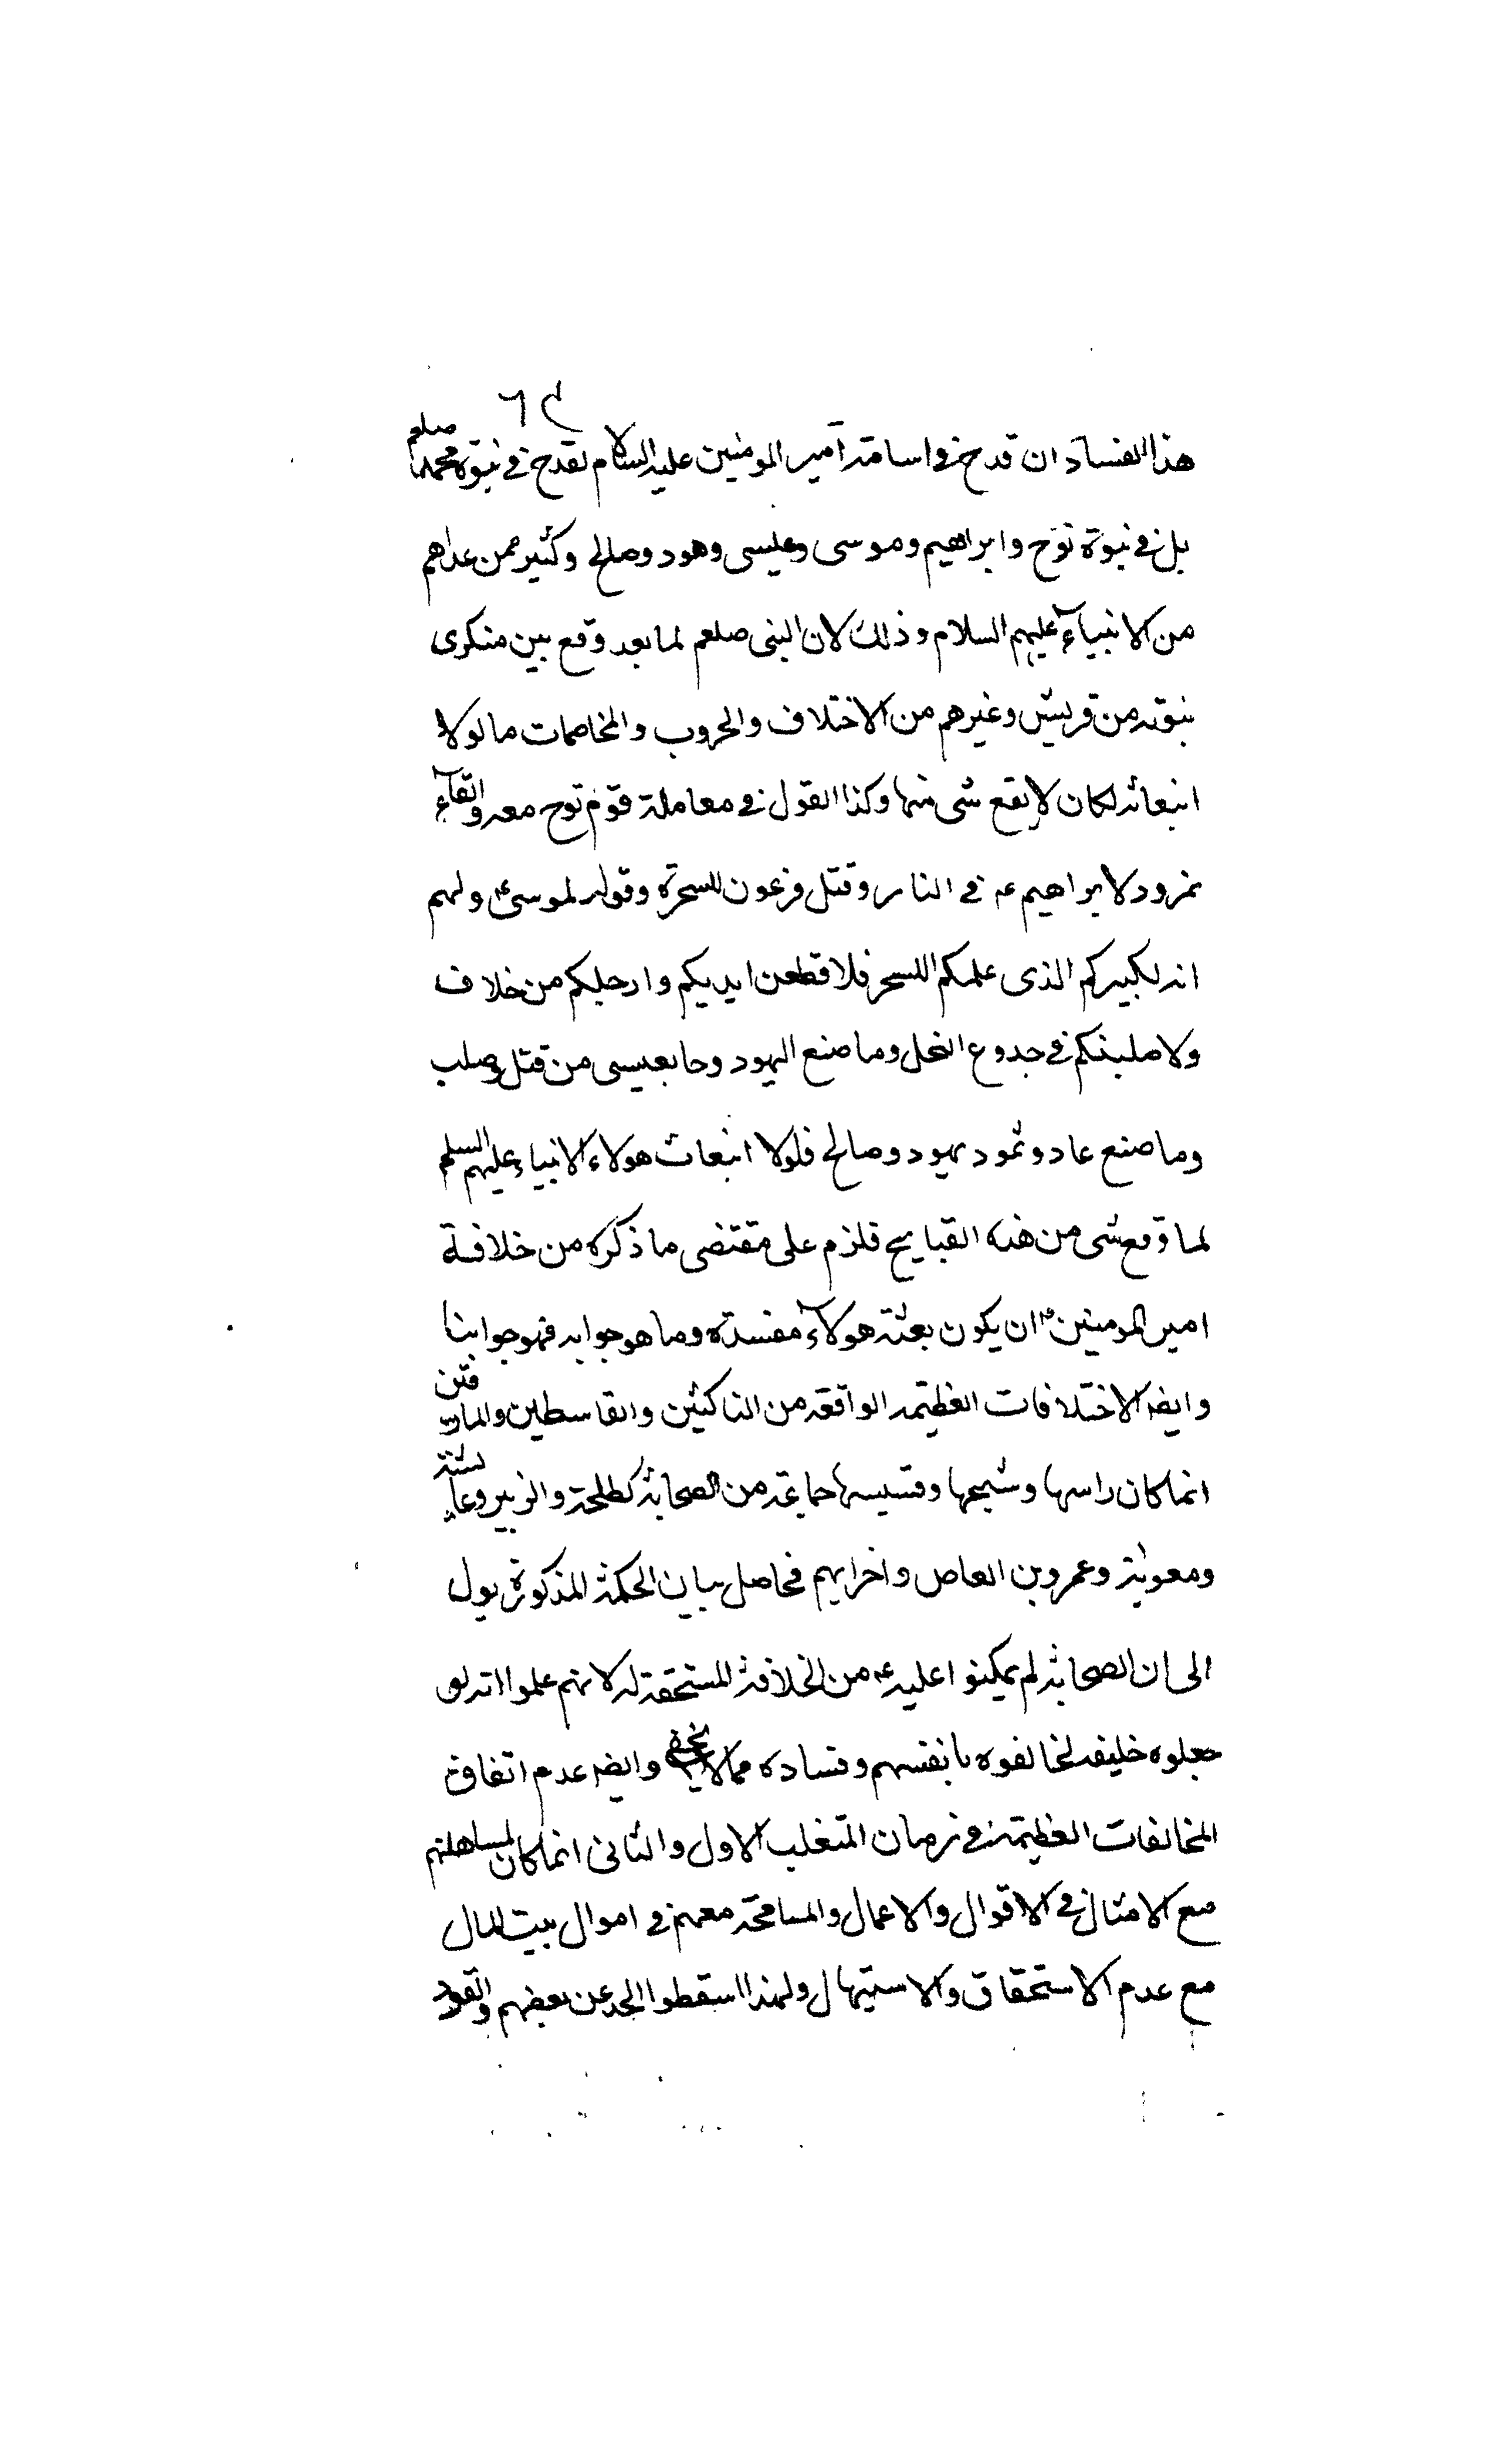 ٦٤
هذا الفساد ان قدح فى اسامة امير المومنين عليه السلام لقدح فى نبوة محمد صلعم
بل فى نبوة نوح وابراهيم وموسى وعيسى وهود وصالح وكثير ممن عداهم
من الانبياء عليهم السلام وذلك لان النبى صلعم لما بعد وقع بين منكرى
نبوته من قريش وغيرهم من الاختلاف والحروب والمخاصمات ما لولا
انبعاثه لكان لا يقع شى منها وكذا القول فى معاملة قوم نوح معه والقاء
نمرود لابراهيم ع فى النار وقتل فرعون للسحرة وقوله لموسى ع ولهم
انه لكبيركم الذى علمكم السحر فلاقطعن ايديكم وارجلكم من خلاف
ولاصلبنكم فى جدوع النخل وما صنع اليهود بعيسى من قتل وصلب
وما صنع عاد وثمود بهود وصالح فلولا انبعاث هولاء الانبياء عليهم السلم
لما وقع شى من هذه القبايح فلزم على مقتضى ما ذكره من خلافة
امير المومنين ع ان يكون بعثة هولاء مفسدة وما هو جوابه فهو جوابنا
وايضا الاختلافات العظيمة الواقعة من الناكثين والقاسطين والمارقين
انما كان راسها وشيخها وقسيسها جماعة من الصحابة كطلحة والزبير وعايشة
ومعوية وعمرو بن العاص واحزابهم فحاصل بيان الحكمة المذكورة يول
الى ان الصحابة لم يمكنوا عليه ع من الخلافة المستحقة له لانهم علموا انه لو
جعلوه خليفة لخالفوه بانفسهم وفساده مما لا يخفى وايضا عدم اتفاق
المخالفات العظيمة فى زمان المتغلب الاول والثانى انما كان لمساهلتهم
مع الامثال فى الاقوال والاعمال والمسامحة معهم فى اموال بيت المال
مع عدم الاستحقاق والاستيهال ولهذا اسقطوا الحد عن بعضهم والقود